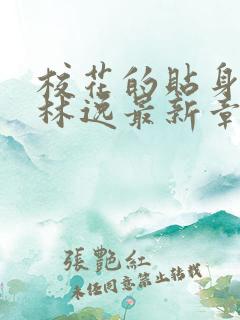 校花的贴身
林逸最新章
張艷紅
未经同意禁止转载